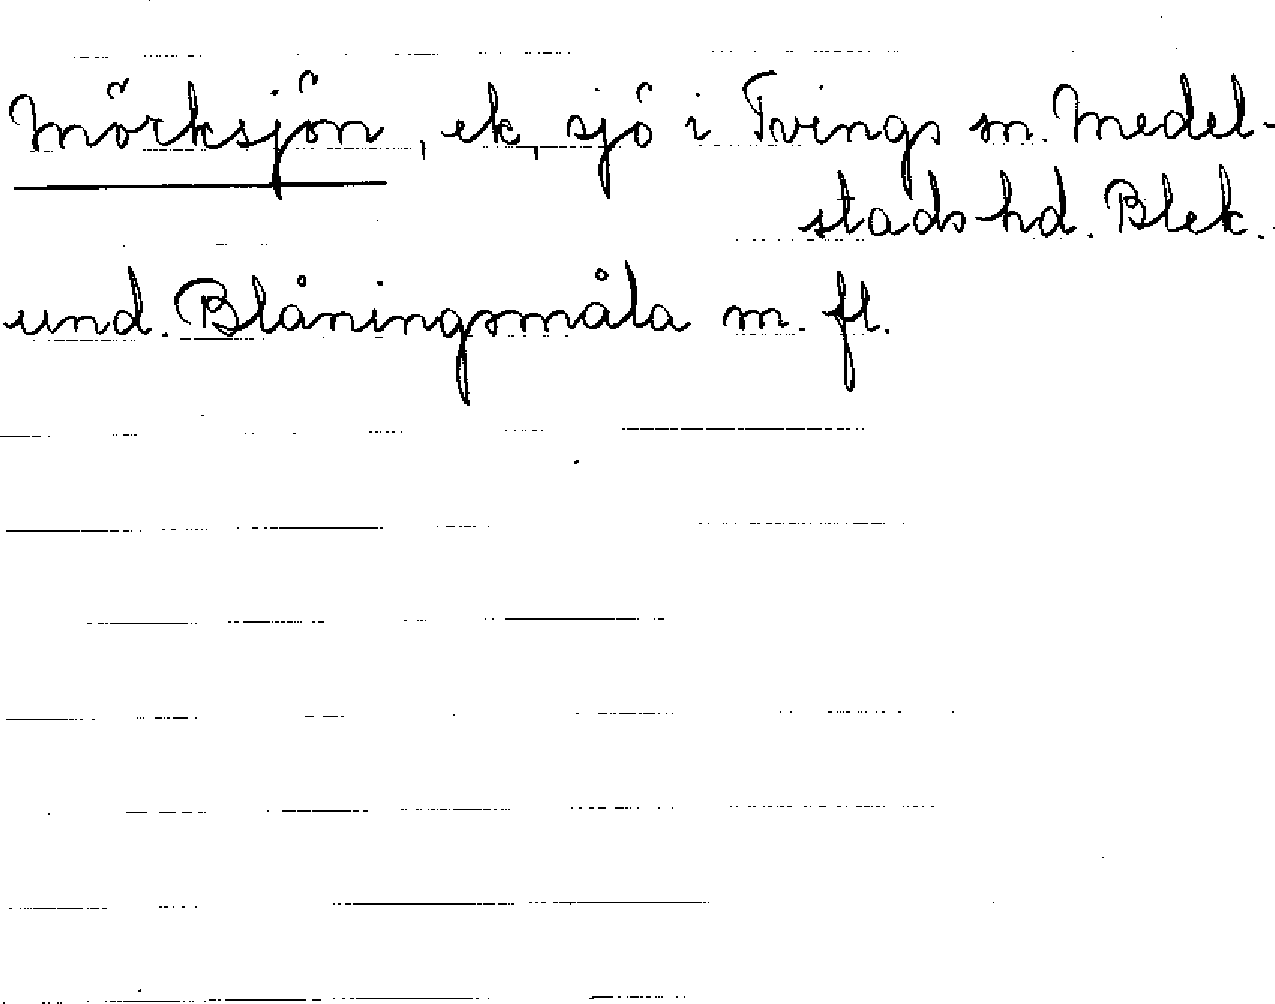 Mörksjön, ek, sjö i Tvings sn. Medel-
stads hd. Blek.
und. Blåningsmåla m. fl.